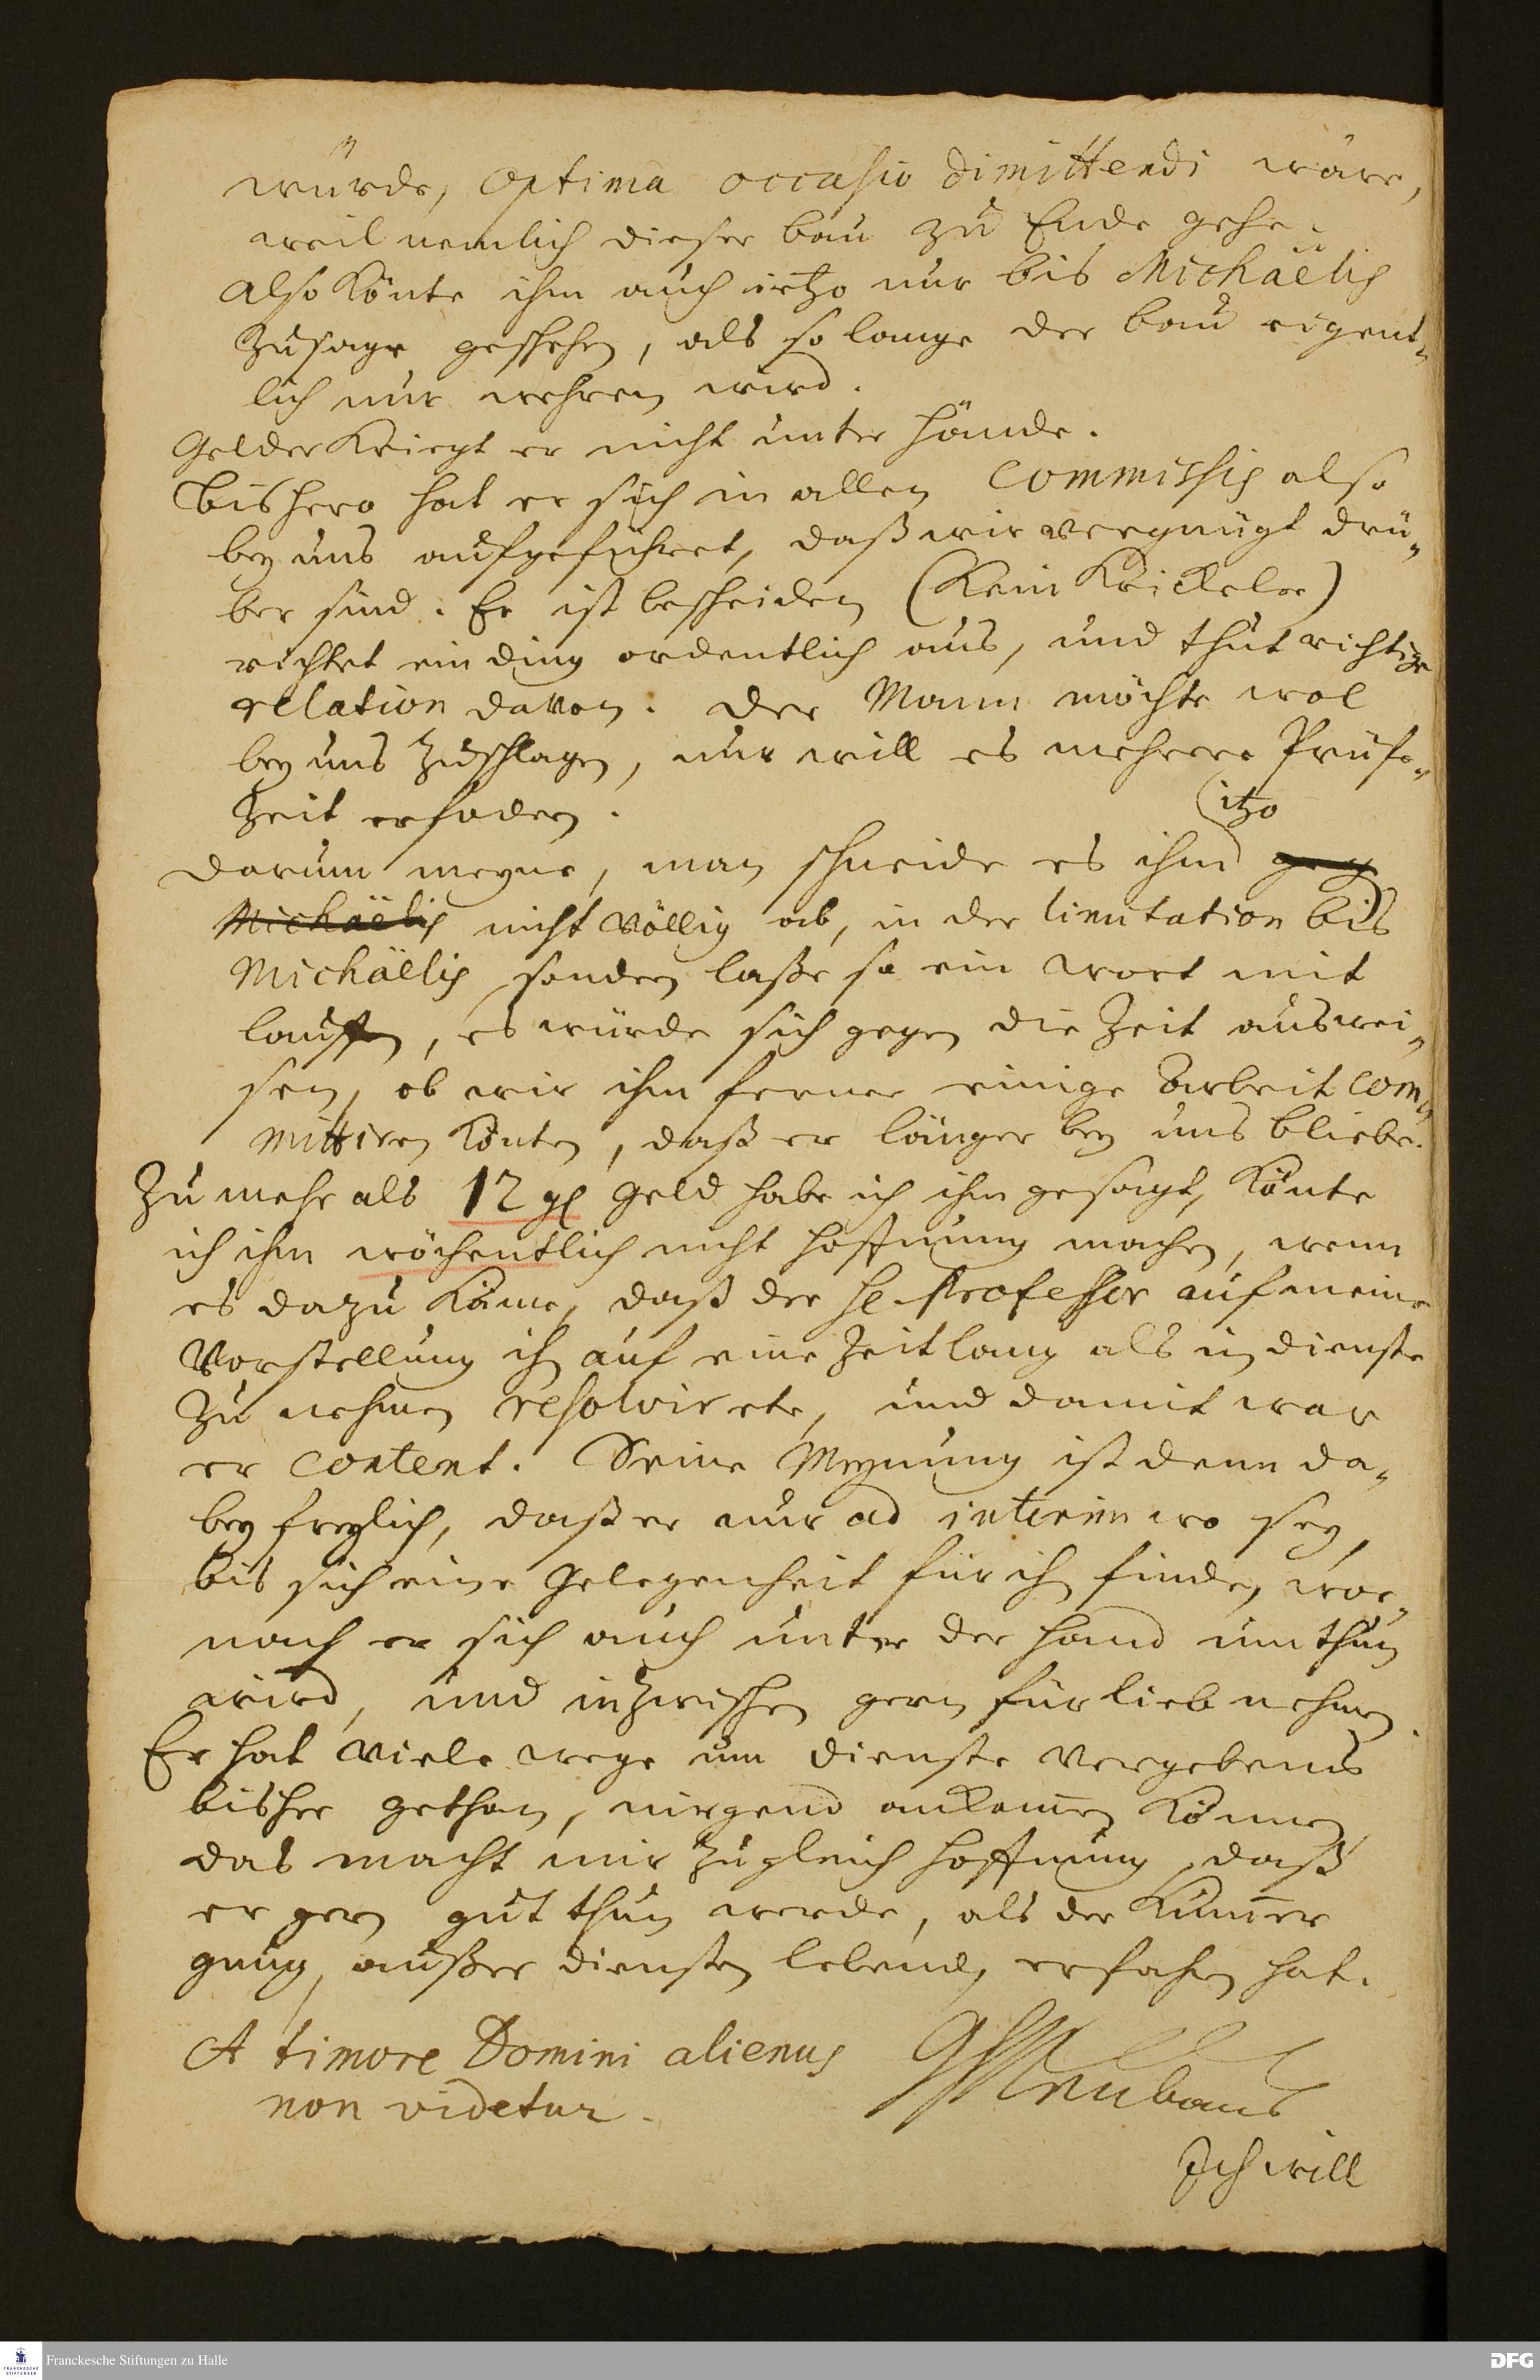 würde, optima occasio dimittendi wäre,
weil nemlich dieser bau zu Ende gehe.
Also könte ihm auch ietzo nur bis Michäelis
zusage geschehen, als so lange der bau eigent-
lich nur wehren wird.
Gelder kriegt er nicht unter Hände.
Bishero hat er sich in allen Commissis also
bey uns aufgeführet, daß wir vergnügt drü-
ber sind. Er ist bescheiden (kein Krickeler)
richtet ein ding ordentlich aus, und thut richtige
relation davon. Der Mann möchte wol
bey uns zuschlagen, nur will es mehrere Prüfe-
Zeit erfodern.
itzo
Darum meyne, man schneide es ihm geg
Michäelis nicht völlig ab, in der limitation bis
Michäelis sondern laße so ein wort mit
lauffen, es würde sich gegen die Zeit auswei-
sen, ob wir ihm ferner einige Arbeit com-
mittiren könten, daß er länger bey uns bliebe.
Zu mehr als 12 gl Geld habe ich ihm gesagt, könte
ich ihm wöchentlich nicht hoffnung machen, wenn
es dazu käme, daß der H. Professor auf meine
Vorstellung ihn auf eine Zeitlang als in dienste
zu nehmen resolvirete, und damit war
er content. Seine Meynung ist denn da-
bey freylich, daß er nur ad interim wo sey,
bis sich eine Gelegenheit für ihn finde, wor-
nach er sich auch unter der hand umthun
wird, und inzwischen gern fürlieb nehmen
Er hat viele wege um Dienste vergebens
bisher gethan, nirgend ankom̅en können
das macht mir zugleich hoffnung, daß
er gern gut thun werde, als der Kum̅er
gnug, außer diensten lebend, erfahren hat.
A timore Domini alienus
non videtur.
GHNeubaus
Ich will
Franckesche Stiftungen zu Halle
DFG